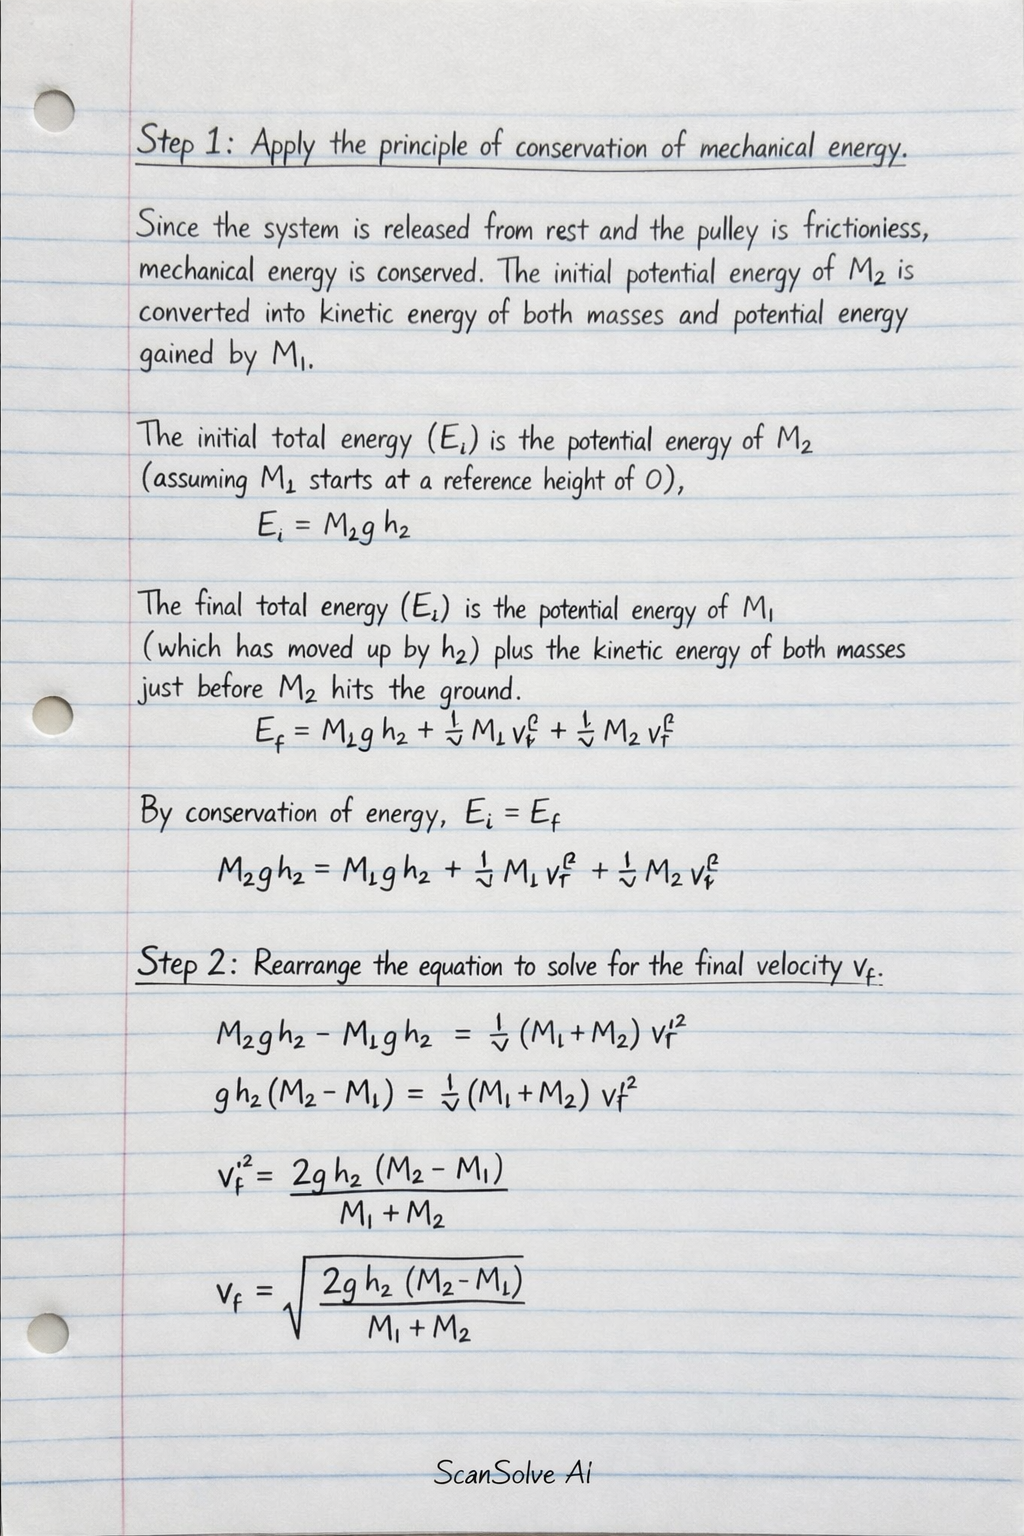 Step 1: Apply the principle of conservation of mechanical energy.
Since the system is released from rest and the pulley is frictionless,
mechanical energy is conserved. The initial potential energy of M₂ is
converted into kinetic energy of both masses and potential energy
gained by M₁.
The initial total energy (Eᵢ) is the potential energy of M₂
(assuming M₁ starts at a reference height of 0),
Eᵢ = M₂g h₂
The final total energy (Eᵢ) is the potential energy of M₁
(which has moved up by h₂) plus the kinetic energy of both masses
just before M₂ hits the ground.
E_f = M₁g h₂ + M₁ v + M₂ v
By conservation of energy, Eᵢ = E_f
M₂g h₂ = M₁g h₂ + M₁ v + M₂ v
Step 2: Rearrange the equation to solve for the final velocity v_f.
M₂g h₂ - M₁g h₂ = (M₁ + M₂) v_f'²
g h₂ (M₂ - M₁) = (M₁ + M₂) v_f'²
v_f'² = 2g h₂ (M₂ - M₁)
M₁ + M₂
v_f = √ 2g h₂ (M₂ - M₁)
M₁ + M₂
ScanSolve Ai